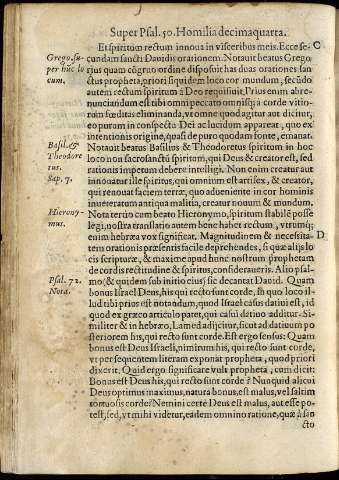 Super Psal. 50. Homilia decimaquarta.
Et spiritum rectum innoua in visceribus meis. Ecce se- C
cundam sancti Dauidis orationem. Notauit beatus Grego-
Grego. su-
per hūc lo
cum.
rius quam cōgruo ordine disposuit has duas orationes san-
ctus propheta, priori siquidem loco cor mundum, secūdo
autem rectum spiritum à Deo requisiuit. Prius enim abre-
nunciandum est tibi omni peccato omnisq́; à corde vitio-
rum fœditas eliminanda, vt omne quod agitur aut dicitur,
eo purum in conspectu Dei ac lucidum appareat, quo ex
intentionis origine, quasi de puro quodam fonte, emanat.
Basil. &
Theodore
tus.
Sap. 7.
Notauit beatus Basilius & Theodoretus spiritum in hoc
loco non sacrosanctū spiritum, qui Deus & creator est, sed
rationis impetum debere intelligi. Non enim creatur aut
innouatur ille spiritus, qui omnium est artifex, & creator,
qui renouat faciem terræ, quo adueniente in cor hominis
inueteratum antiqua malitia, creatur nouum & mundum.
Hierony-
mus.
Nota tertiò cum beato Hieronymo, spiritum stabilē posse
legi, nostra translatio autem bene habet rectum, vtrumq́;
enim hebræa vox significat. Magnitudinem & necessita- D
tem orationis præsentis facilè deprehendes, si quæ alijs lo
cis scripturæ, & maximè apud hunc nostrum prophetam
de cordis rectitudine & spiritus, consideraueris. Alio psal-
Psal. 72.
Nota.
mo (& quidem sub initio eius) sic decantat Dauid. Quam
bonus Israel Deus, his qui recto sunt corde, In quo loco il-
lud tibi prius est notandum, quod Israel casus datiui est, id
quod ex græco articulo patet, qui casui datiuo additur. Si-
militer & in hebræo, Lamed adijcitur, sicut ad datiuum po
steriorem his, qui recto sunt corde. Est ergo sensus: Quam
bonus est Deus Israeli, nimirum his, qui recto sunt corde,
vt per sequentem literam exponat propheta, quod priori
dixerit. Quid ergo significare vult propheta, cum dicit:
Bonus est Deus his, qui recto sunt corde? Nunquid alicui
Deus optimus maximus, natura bonus, est malus, vel saltim
tortuosis corde? Nemini certè Deus est malus, aut esse po-
test, sed, vt mihi videtur, eadem omnino ratione, quæ à san
cto